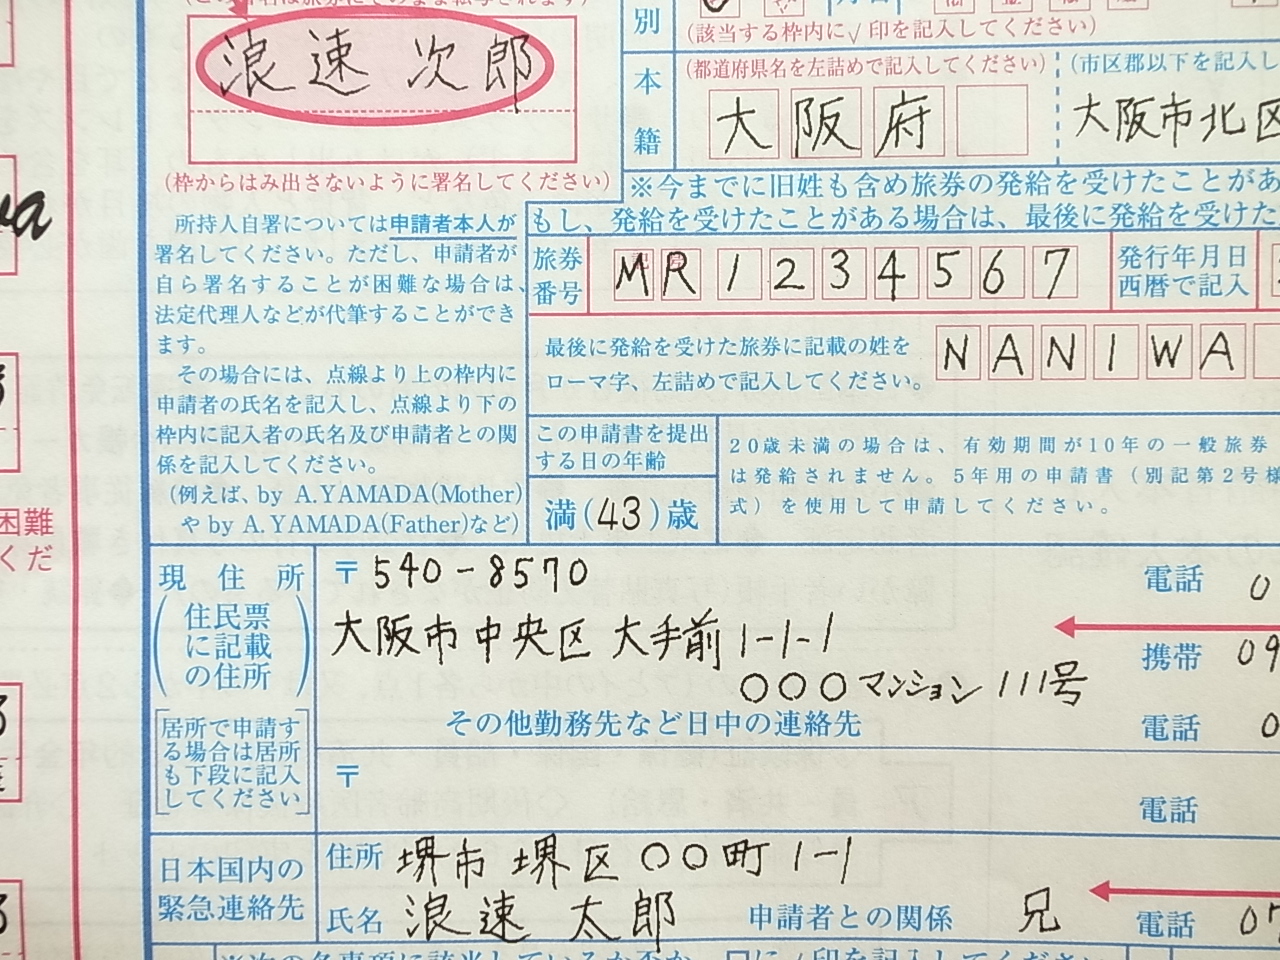 浪速次郎
(枠からはみ出さないように署名してください)
所持人自署については申請者本人が
署名してください。ただし、申請者が
自ら署名することが困難な場合は、
法定代理人などが代筆することができ
ます。
その場合には、点線より上の枠内に
申請者の氏名を記入し、点線より下の
枠内に記入者の氏名及び申請者との関
係を記入してください。
(例えば、by A.YAMADA(Mother)
や by A.YAMADA(Father)など)
別
(該当する枠内に√印を記入してください)
本籍
(都道府県名を左詰めで記入してください)
(市区郡以下を記入し
大阪府
大阪市北区
※今までに旧姓も含め旅券の発給を受けたことがあ
もし、発給を受けたことがある場合は、最後に発給を受けた
旅券番号
MR1234567
発行年月日
西暦で記入
最後に発給を受けた旅券に記載の姓を
ローマ字、左詰めで記入してください。
NANIWA
この申請書を提出
する日の年齢
満(43)歳
20歳未満の場合は、有効期間が10年の一般旅券
は発給されません。5年用の申請書(別記第2号様
式)を使用して申請してください。
困難
くだ
現住所
(住民票
に記載
の住所)
〒540-8570
大阪市中央区大手前1-1-1
○○○マンション111号
電話 0
携帯 09
[居所で申請す
る場合は居所
も下段に記入
してください]
その他勤務先など日中の連絡先
電話 0
〒
電話
日本国内の
緊急連絡先
住所 堺市堺区○○町1-1
氏名 浪速太郎
申請者との関係 兄
電話 07